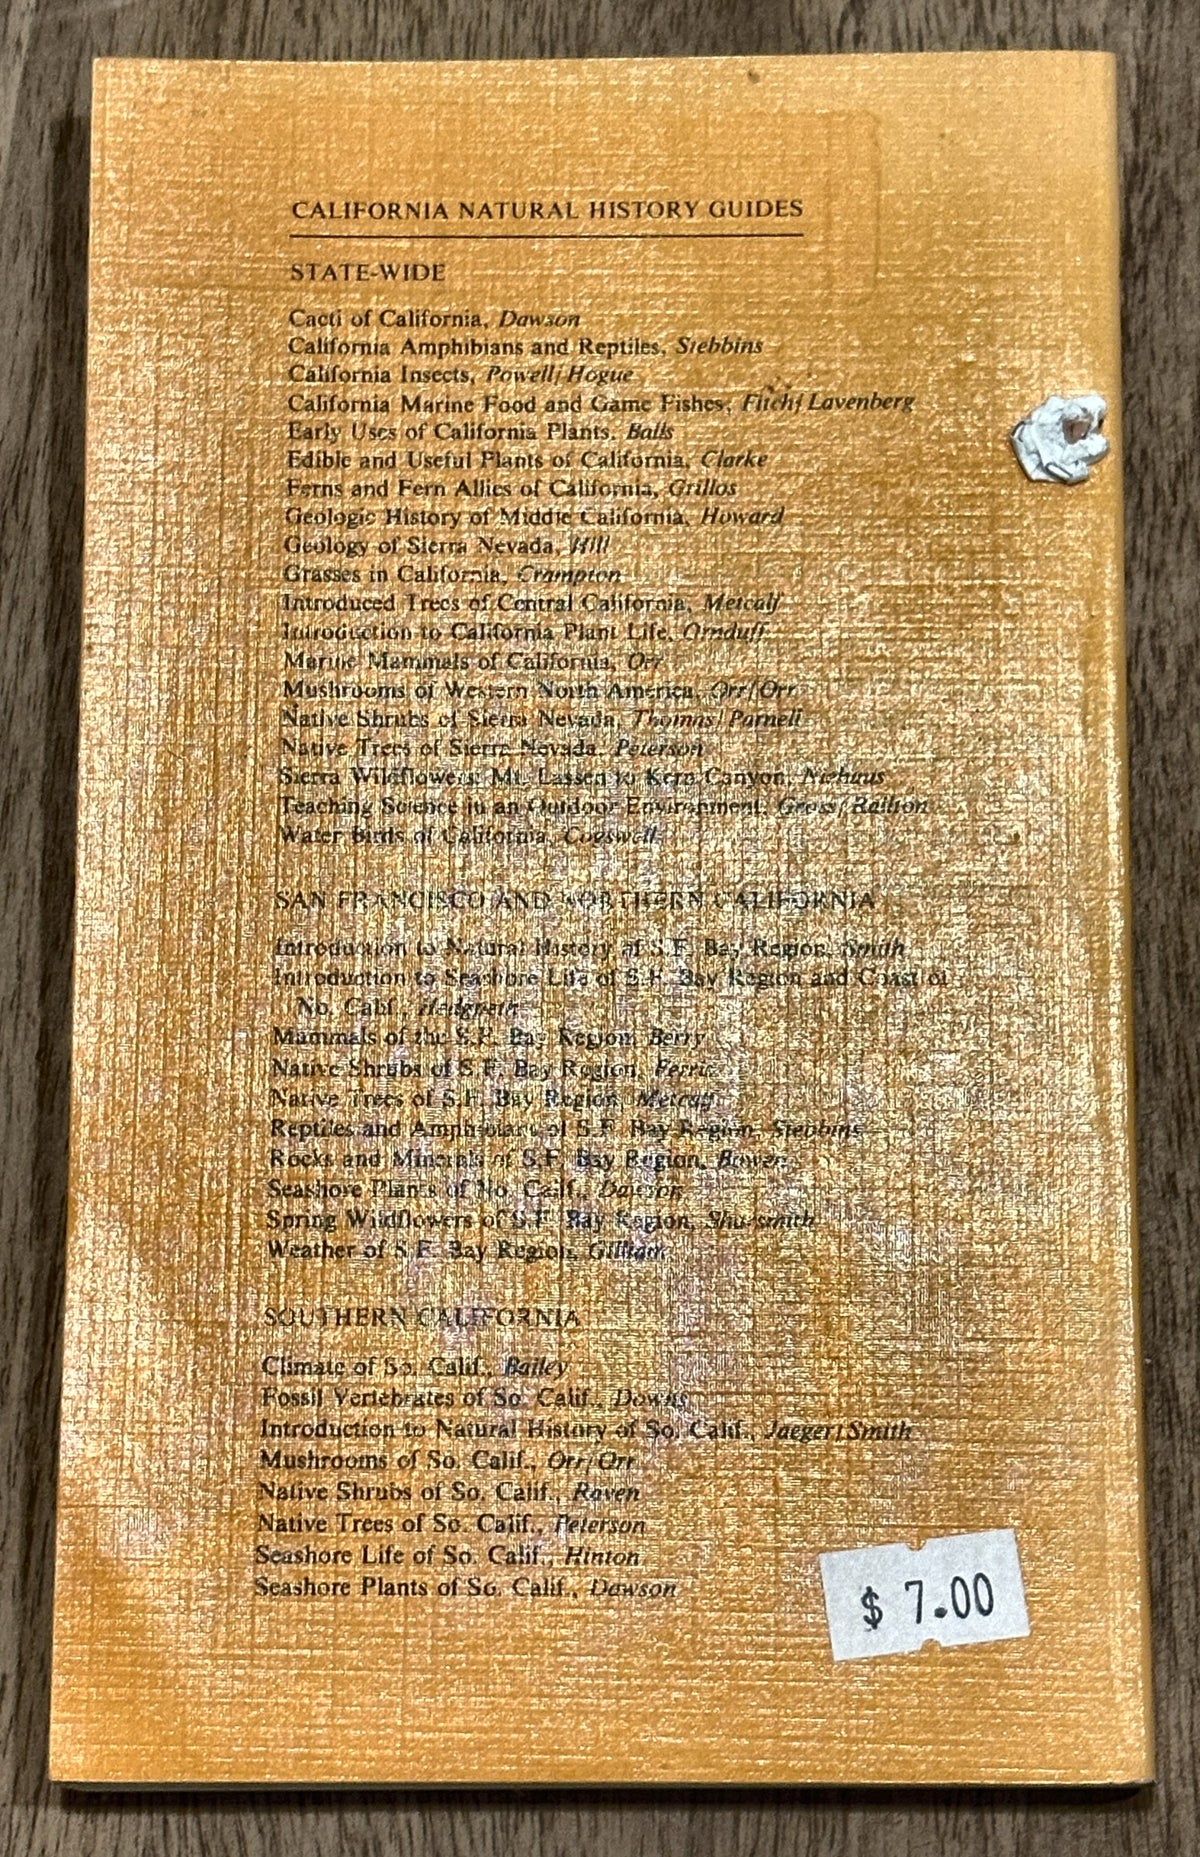 CALIFORNIA NATURAL HISTORY GUIDES
STATE-WIDE
Cacti of California, Dawson
California Amphibians and Reptiles, Stebbins
California Insects, Powell/Hogue
California Marine Food and Game Fishes, Fitch/Lavenberg
Early Uses of California Plants, Balls
Edible and Useful Plants of California, Clarke
Ferns and Fern Allies of California, Grillos
Geologic History of Middle California, Howard
Geology of Sierra Nevada, Hill
Grasses in California, Crampton
Introduced Trees of Central California, Metcalf
Introduction to California Plant Life, Ornduff
Marine Mammals of California, Orr
Mushrooms of Western North America, Orr/Orr
Native Shrubs of Sierra Nevada, Thomas/Parnell
Native Trees of Sierra Nevada, Peterson
Sierra Wildflowers: Mt. Lassen to Kern Canyon, Niehaus
Teaching Science in an Outdoor Environment, Gross/Railton
Water Birds of California, Cogswell
SAN FRANCISCO AND NORTHERN CALIFORNIA
Introduction to Natural History of S.F. Bay Region, Smith
Introduction to Seashore Life of S.F. Bay Region and Coast of
No. Calif., Hedgpeth
Mammals of the S.F. Bay Region, Berry
Native Shrubs of S.F. Bay Region, Ferris
Native Trees of S.F. Bay Region, Metcalf
Reptiles and Amphibians of S.F. Bay Region, Stebbins
Rocks and Minerals of S.F. Bay Region, Bowen
Seashore Plants of No. Calif., Dawson
Spring Wildflowers of S.F. Bay Region, Sharsmith
Weather of S.F. Bay Region, Gilliam
SOUTHERN CALIFORNIA
Climate of So. Calif., Bailey
Fossil Vertebrates of So. Calif., Downs
Introduction to Natural History of So. Calif., Jaeger/Smith
Mushrooms of So. Calif., Orr/Orr
Native Shrubs of So. Calif., Raven
Native Trees of So. Calif., Peterson
Seashore Life of So. Calif., Hinton
Seashore Plants of So. Calif., Dawson
$ 7.00